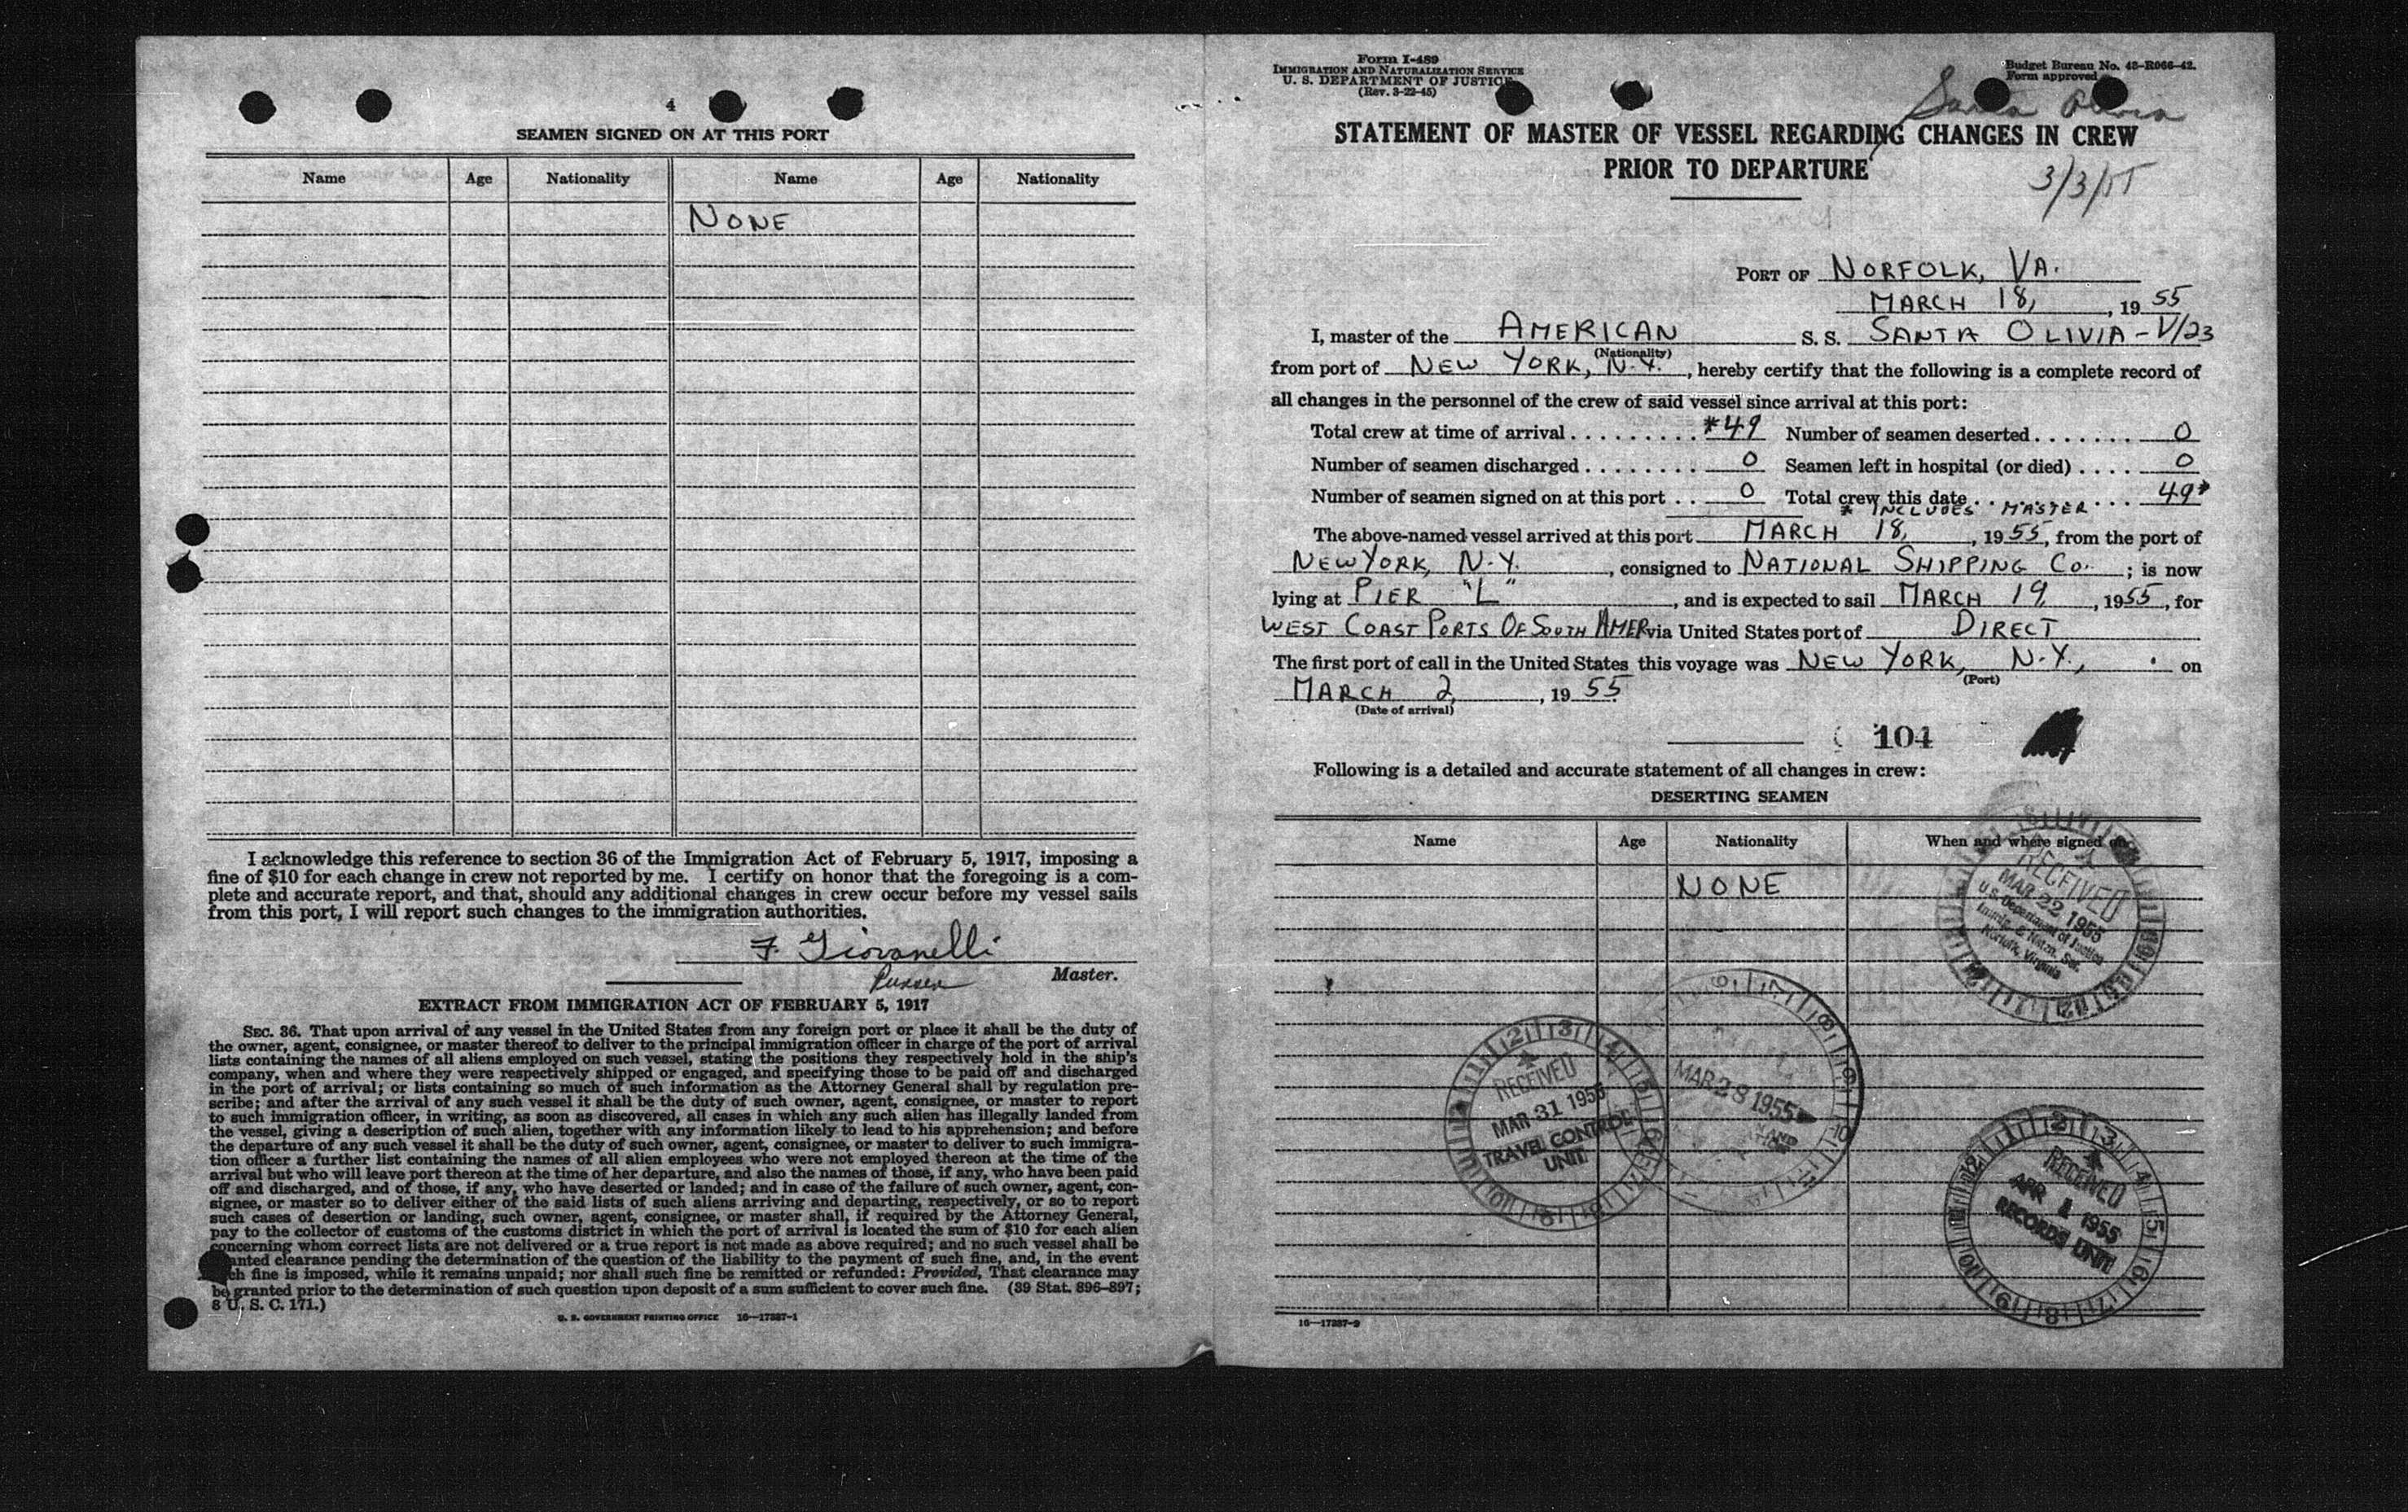 4
SEAMEN SIGNED ON AT THIS PORT
Name Age Nationality Name Age Nationality
NONE
I acknowledge this reference to section 36 of the Immigration Act of February 5, 1917, imposing a
fine of $10 for each change in crew not reported by me. I certify on honor that the foregoing is a com-
plete and accurate report, and that, should any additional changes in crew occur before my vessel sails
from this port, I will report such changes to the immigration authorities.
F. Giovanelli
Purser Master.
EXTRACT FROM IMMIGRATION ACT OF FEBRUARY 5, 1917
SEC. 36. That upon arrival of any vessel in the United States from any foreign port or place it shall be the duty of
the owner, agent, consignee, or master thereof to deliver to the principal immigration officer in charge of the port of arrival
lists containing the names of all aliens employed on such vessel, stating the positions they respectively hold in the ship's
company, when and where they were respectively shipped or engaged, and specifying those to be paid off and discharged
in the port of arrival; or lists containing so much of such information as the Attorney General shall by regulation pre-
scribe; and after the arrival of any such vessel it shall be the duty of such owner, agent, consignee, or master to report
to such immigration officer, in writing, as soon as discovered, all cases in which any such alien has illegally landed from
the vessel, giving a description of such alien, together with any information likely to lead to his apprehension; and before
the departure of any such vessel it shall be the duty of such owner, agent, consignee, or master to deliver to such immigra-
tion officer a further list containing the names of all alien employees who were not employed thereon at the time of the
arrival but who will leave port thereon at the time of her departure, and also the names of those, if any, who have been paid
off and discharged, and of those, if any, who have deserted or landed; and in case of the failure of such owner, agent, con-
signee, or master so to deliver either of the said lists of such aliens arriving and departing, respectively, or so to report
such cases of desertion or landing, such owner, agent, consignee, or master shall, if required by the Attorney General,
pay to the collector of customs of the customs district in which the port of arrival is located the sum of $10 for each alien
concerning whom correct lists are not delivered or a true report is not made as above required; and no such vessel shall be
granted clearance pending the determination of the question of the liability to the payment of such fine, and, in the event
such fine is imposed, while it remains unpaid; nor shall such fine be remitted or refunded: Provided, That clearance may
be granted prior to the determination of such question upon deposit of a sum sufficient to cover such fine. (39 Stat. 896–897;
8 U. S. C. 171.)
U. S. GOVERNMENT PRINTING OFFICE 16—17287-1
Form I-489
IMMIGRATION AND NATURALIZATION SERVICE
U. S. DEPARTMENT OF JUSTICE
(Rev. 3-22-45)
Budget Bureau No. 43-R066-42.
Form approved
Santa Olivia
STATEMENT OF MASTER OF VESSEL REGARDING CHANGES IN CREW
PRIOR TO DEPARTURE
3/3/55
PORT OF NORFOLK, VA.
MARCH 18, , 19 55
I, master of the AMERICAN S. S. SANTA OLIVIA - V/23
(Nationality)
from port of NEW YORK, N.Y. , hereby certify that the following is a complete record of
all changes in the personnel of the crew of said vessel since arrival at this port:
Total crew at time of arrival . . . . . . . . . *49 Number of seamen deserted . . . . . . . 0
Number of seamen discharged . . . . . . . . 0 Seamen left in hospital (or died) . . . . 0
Number of seamen signed on at this port . . 0 Total crew this date . . . . . . . . 49*
* INCLUDES MASTER
The above-named vessel arrived at this port MARCH 18, , 19 55, from the port of
NEW YORK, N.Y. , consigned to NATIONAL SHIPPING CO. ; is now
lying at PIER "L" , and is expected to sail MARCH 19, , 1955, for
WEST COAST PORTS OF SOUTH AMER via United States port of DIRECT
The first port of call in the United States this voyage was NEW YORK, N.Y., on
(Port)
MARCH 2, , 19 55
(Date of arrival)
104
Following is a detailed and accurate statement of all changes in crew:
DESERTING SEAMEN
Name Age Nationality When and where signed on
NONE
RECEIVED
MAR 22 1955
U.S. Department of Justice
Immig. & Natzn. Ser.
Norfolk, Virginia
MAR 28 1955
RECEIVED
MAR 31 1955
TRAVEL CONTROL
UNIT
RECEIVED
APR 1 1955
RECORDS UNIT
16—17287-2